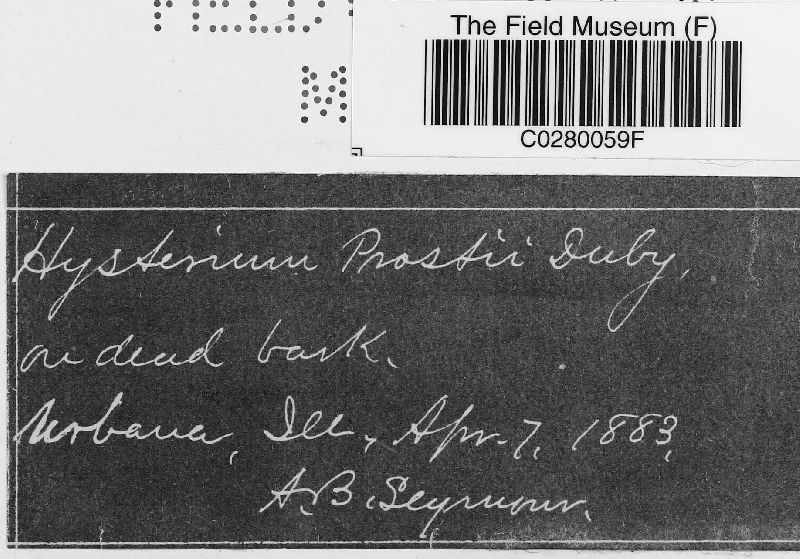 The Field Museum (F)
C0280059F
M
Hysterium Prostii Duby,
on dead bark.
Urbana, Ill., Apr. 7, 1883,
A. B. Seymour.